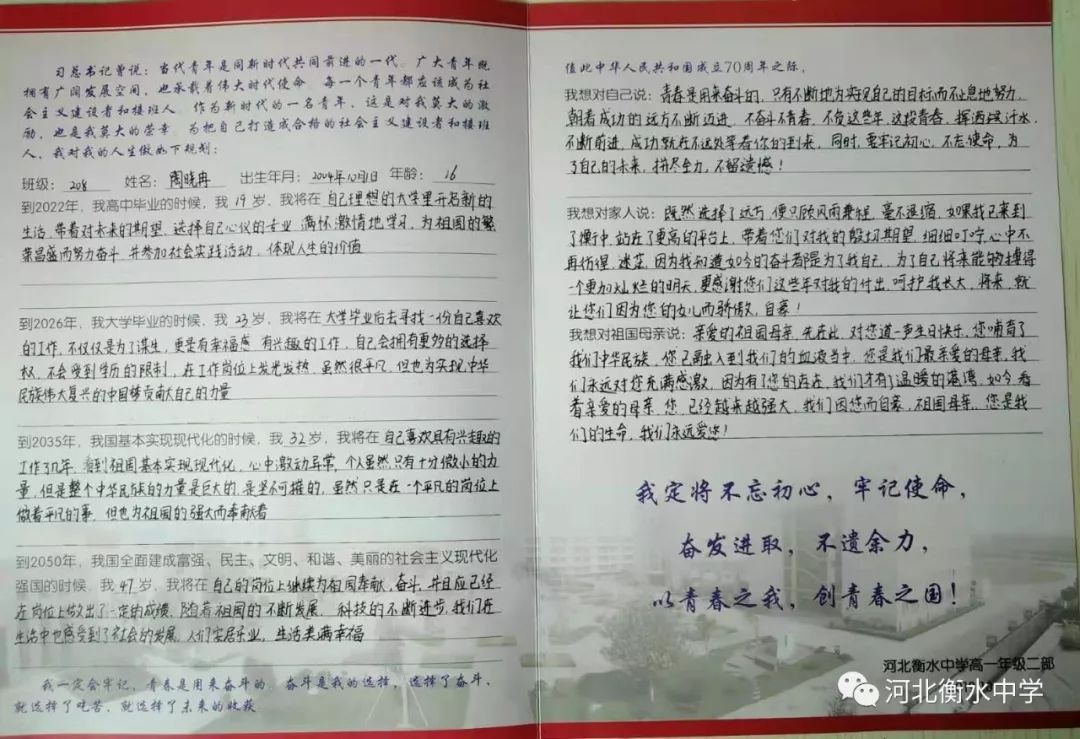 习总书记曾说：当代青年是同新时代共同前进的一代。广大青年既
拥有广阔发展空间，也承载着伟大时代使命。每一个青年都应该成为社
会主义建设者和接班人。作为新时代的一名青年，这是对我莫大的激
励，也是我莫大的荣幸。为把自己打造成合格的社会主义建设者和接班
人，我对我的人生做如下规划：
班级：208 姓名：陶晓冉 出生年月：2004年10月1日 年龄：16
到2022年，我高中毕业的时候，我19岁，我将在自己理想的大学里开启新的
生活，带着对未来的期望，选择自己心仪的专业，满怀激情地学习，为祖国的繁
荣昌盛而努力奋斗，并参加社会实践活动，体现人生的价值
到2026年，我大学毕业的时候，我23岁，我将在大学毕业后去寻找一份自己喜欢
的工作，不仅仅是为了谋生，更是有幸福感，有兴趣的工作，自己会拥有更多的选择
权，不会受到学历的限制，在工作岗位上发光发热，虽然很平凡，但也为实现中华
民族伟大复兴的中国梦贡献自己的力量
到2035年，我国基本实现现代化的时候，我32岁，我将在自己喜欢具有兴趣的
工作了几年，看到祖国基本实现现代化，心中激动异常，个人虽然只有十分微小的力
量，但是整个中华民族的力量是巨大的，是坚不可摧的，虽然只是在一个平凡的岗位上
做着平凡的事，但也为祖国的强大而奉献着
到2050年，我国全面建成富强、民主、文明、和谐、美丽的社会主义现代化
强国的时候，我47岁，我将在自己的岗位上继续为祖国奉献，奋斗，并且应已经
在岗位上做出了一定的成绩，随着祖国的不断发展，科技的不断进步，我们在
生活中也感受到了社会的发展，人们安居乐业，生活美满幸福
我一定会牢记，青春是用来奋斗的。奋斗是我的选择，选择了奋斗、
就选择了吃苦，就选择了未来的收获
值此中华人民共和国成立70周年之际，
我想对自己说：青春是用来奋斗的，只有不断地为实现自己的目标而不止息地努力，
朝着成功的远方不断迈进，不奋斗不青春，不负这些年，这段青春，挥洒汗水，
不断前进，成功就在不远处等着你的到来，同时，要牢记初心，不忘使命，为
了自己的未来，拼尽全力，不留遗憾！
我想对家人说：既然选择了远方，便只顾风雨兼程，毫不退缩，如果我已来到
了衡中，站在了更高的平台上，带着您们对我的殷切期望，细细叮咛，心中不
再彷徨，迷茫，因为我知道如今的奋斗都是为了我自己，为了自己将来能够搏得
一个更加灿烂的明天，更感谢您们这些年对我的付出，呵护我长大，将来，就
让您们因为您的女儿而骄傲，自豪！
我想对祖国母亲说：亲爱的祖国母亲，先在此，对您道一声生日快乐，您哺育了
我们中华民族，您已融入到我们的血液当中，您是我们最亲爱的母亲，我
们永远对您充满感激，因为有了您的存在，我们才有了温暖的港湾，如今看
着亲爱的母亲，您，已经越来越强大，我们因您而自豪，祖国母亲，您是我
们的生命，我们永远爱您！
我定将不忘初心，牢记使命，
奋发进取，不遗余力，
以青春之我，创青春之国！
河北衡水中学高一年级二部
河北衡水中学